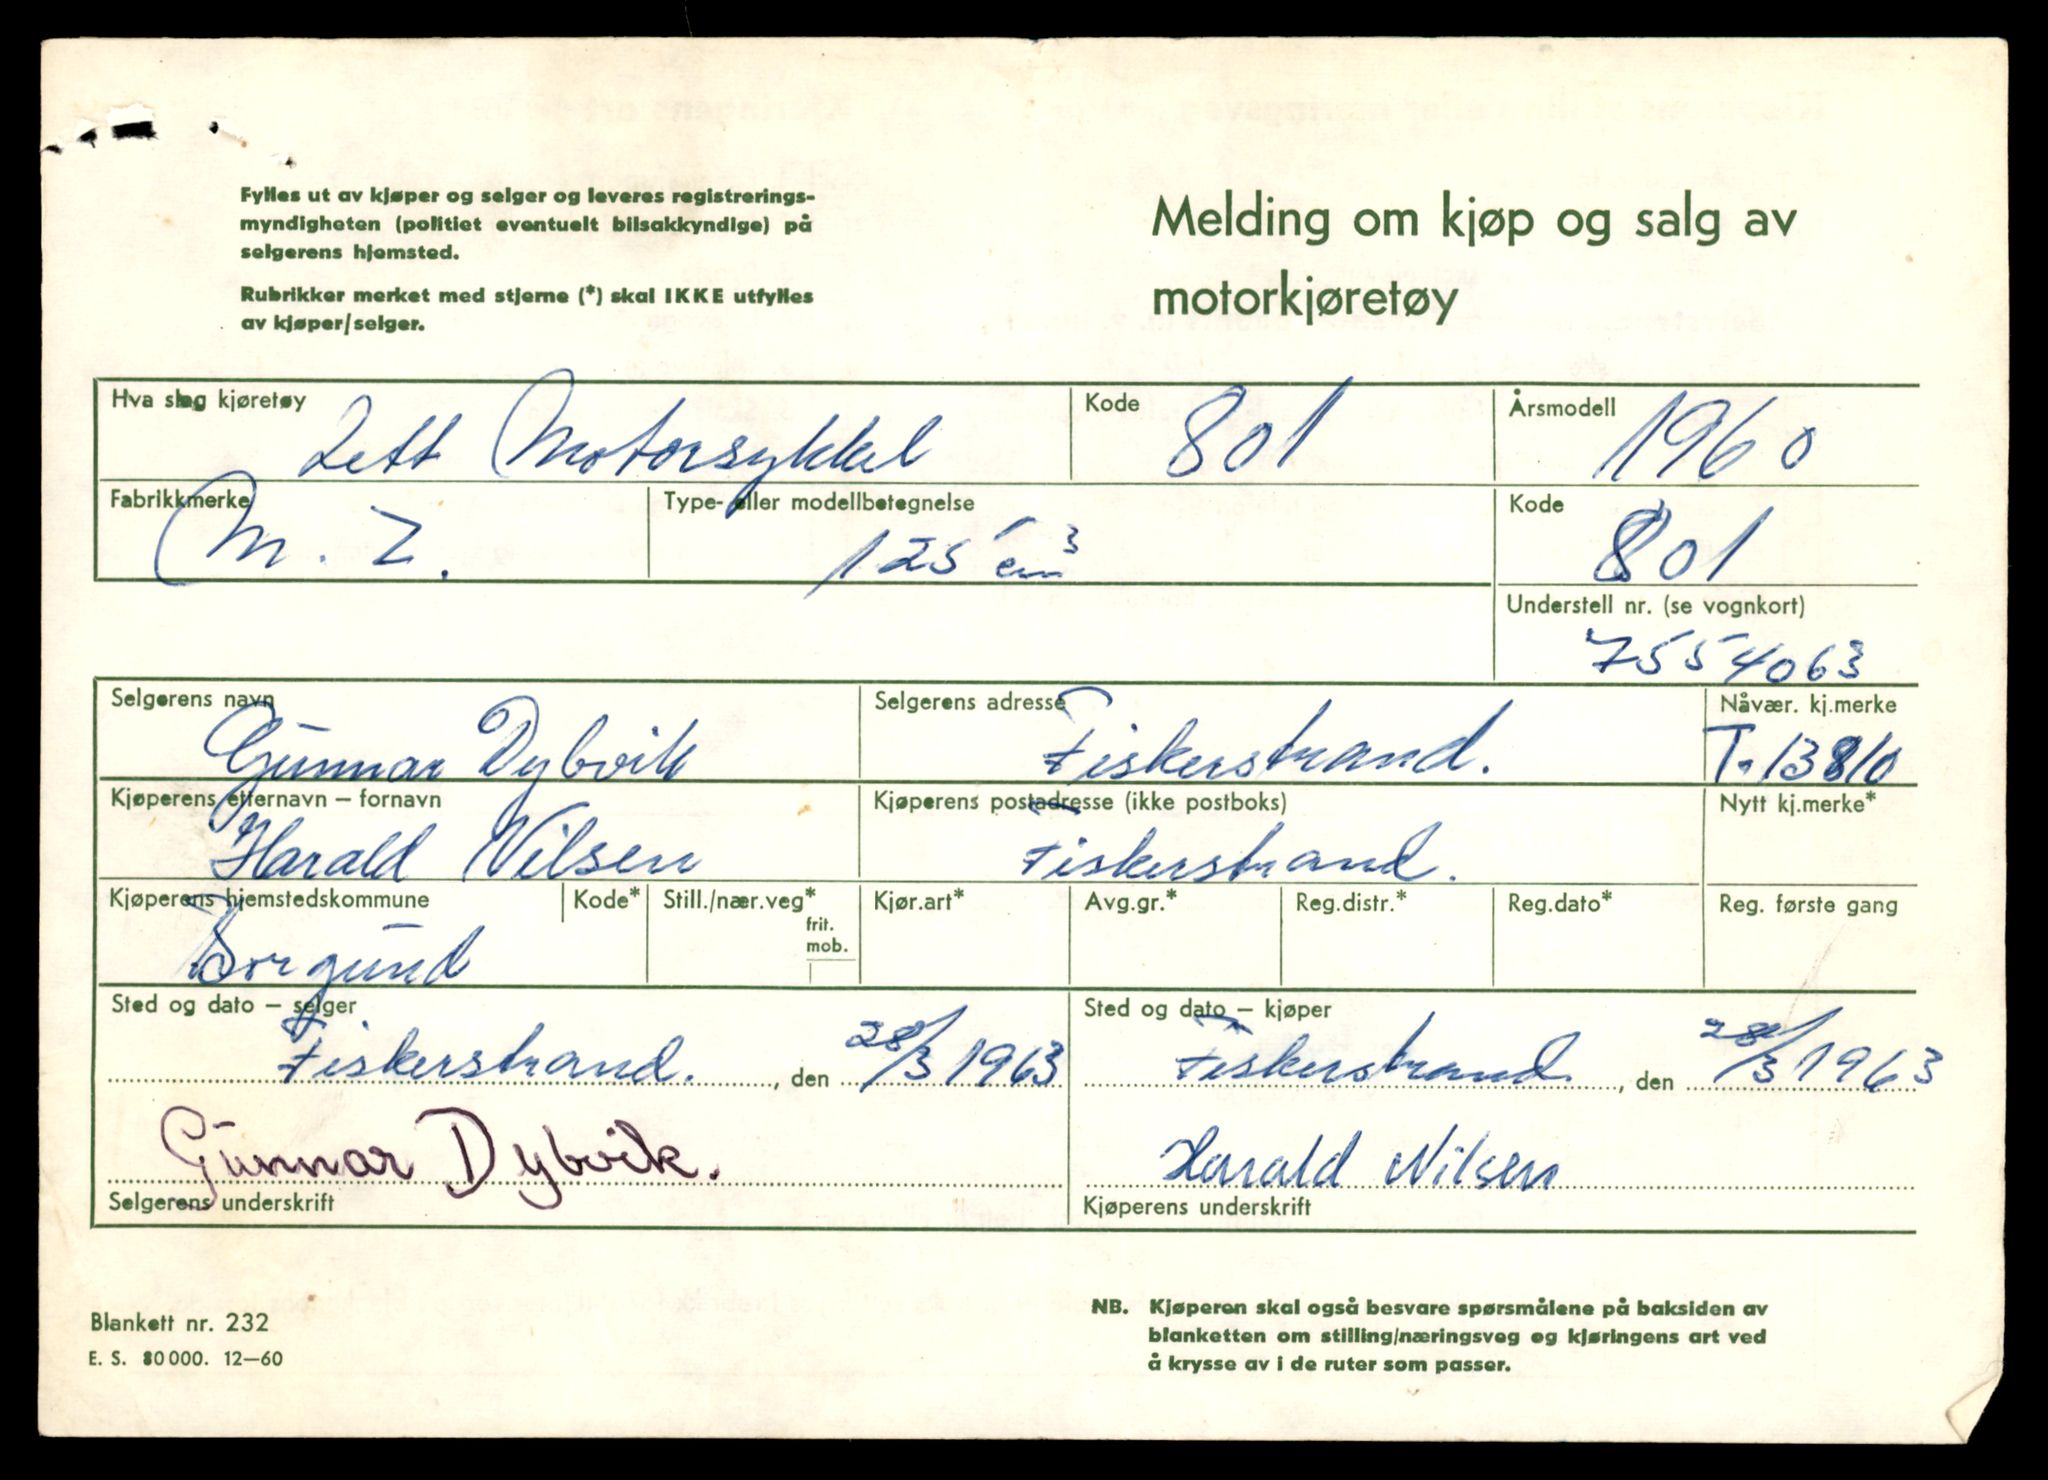 Fylles ut av kjøper og selger og leveres registrerings-
myndigheten (politiet eventuelt bilsakkyndige) på
selgerens hjemsted.
Rubrikker merket med stjerne (*) skal IKKE utfylles
av kjøper/selger.
Melding om kjøp og salg av
motorkjøretøy
Hva slag kjøretøy Kode Årsmodell
Lett Motorsykkel 801 1960
Fabrikkmerke Type- eller modellbetegnelse Kode
M. Z. 125 cm³ 801
Understell nr. (se vognkort)
7554063
Selgerens navn Selgerens adresse Nåvær. kj.merke
Gunnar Dybvik Fiskerstrand. T.13810
Kjøperens etternavn – fornavn Kjøperens postadresse (ikke postboks) Nytt kj.merke*
Harald Nilsen Fiskerstrand.
Kjøperens hjemstedskommune Kode* Still./nær.veg* Kjør.art* Avg.gr.* Reg.distr.* Reg.dato* Reg. første gang
frit.
mob.
Borgund
Sted og dato – selger Sted og dato – kjøper
Fiskerstrand. , den 28/3 1963 Fiskerstrand , den 28/3 1963
Gunnar Dybvik. Harald Nilsen
Selgerens underskrift Kjøperens underskrift
Blankett nr. 232
E. S. 80000. 12–60
NB. Kjøperen skal også besvare spørsmålene på baksiden av
blanketten om stilling/næringsveg og kjøringens art ved
å krysse av i de ruter som passer.